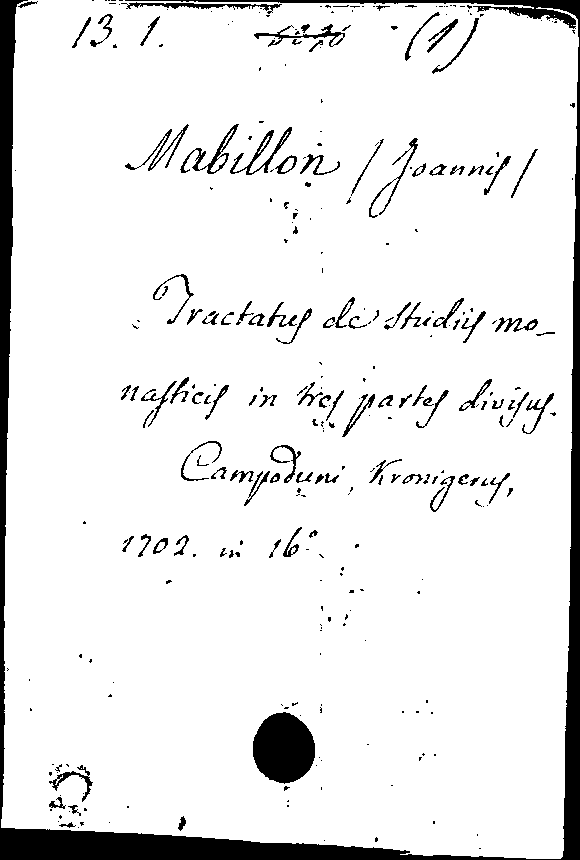 13. 1. (1)
Mabillon / Joannis /
Tractatus de studiis mo-
nasticis in tres partes divisus.
Campoduni, Kronigerus,
1702. in 16°.